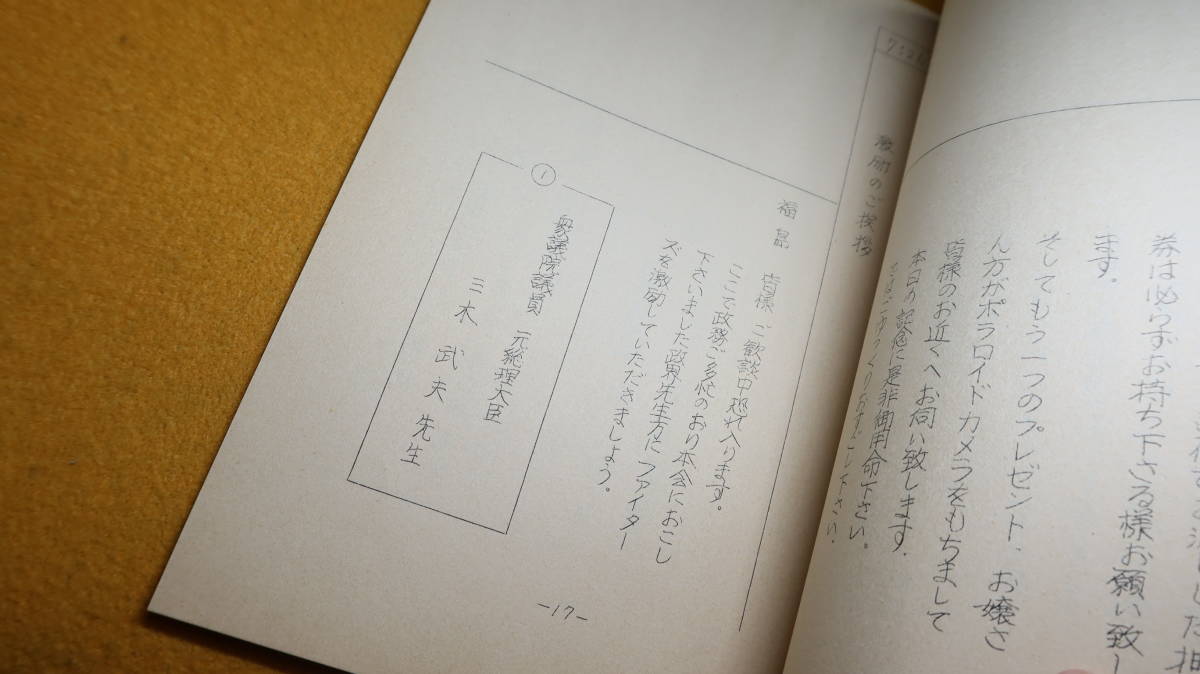 券は必らずお持ち下さる様お願い致し
ます。
そしてもう一つのプレゼント、お嬢さ
ん方がポラロイドカメラをもちまして
皆様のお近くへお伺い致します。
本日の記念に是非御用命下さい。
激励のご挨拶
福島 皆様 ご歓談中恐れ入ります。
ここで政務ご多忙のおり本会におこし
下さいました政界先生方に ファイター
ズを激励していただきましょう。
①
衆議院議員 元総理大臣
三木 武夫 先生
-17-